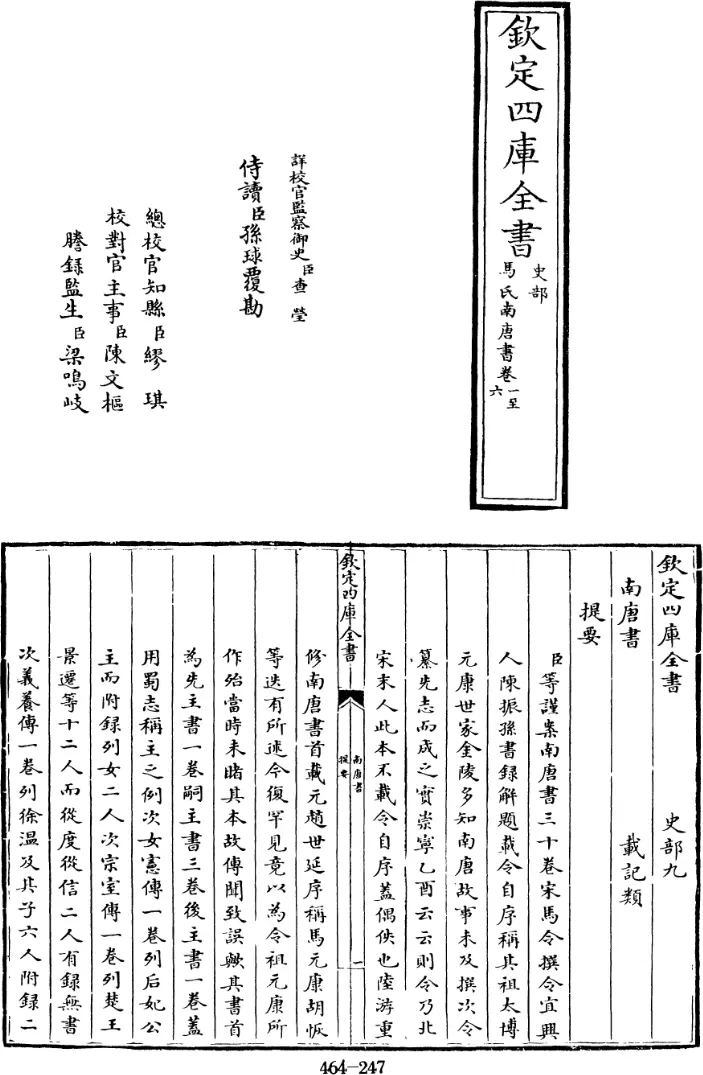 欽定四庫全書
史部
馬氏南唐書卷一至六
詳校官監察御史臣查瑩
侍讀臣孫球覆勘
總校官知縣臣繆琪
校對官主事臣陳文樞
謄錄監生臣梁鳴岐
欽定四庫全書 史部九
南唐書 載記類
提要
臣等謹案南唐書三十卷宋馬令撰令宜興
人陳振孫書録解題載令自序稱其祖太博
元康世家金陵多知南唐故事未及撰次令
纂先志而成之實崇寧乙酉云云則令乃北
宋末人此本不載令自序蓋偶佚也陸游重
欽定四庫全書
南唐書
提要
一
修南唐書首載元趙世延序稱馬元康胡恢
等迭有所述今復罕見竟以為令祖元康所
作殆當時未睹其本故傳聞致誤歟其書首
為先主書一卷嗣主書三卷後主書一卷蓋
用蜀志稱主之例次女憲傳一卷列后妃公
主而附録列女二人次宗室傳一卷列楚王
景遷等十二人而從度從信二人有録無書
次義養傳一卷列徐温及其子六人附録二
464-247